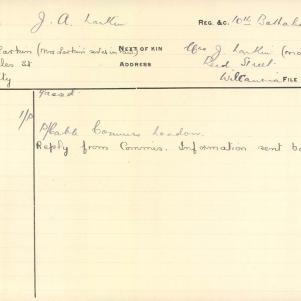 J. A. Larkin REG. &C. 10th Battalio
Larkin (Mrs Larkin's sister in law) NEXT OF KIN Mrs J. Larkin (mo
les St ADDRESS Reid Street
ty Wilcannia FILE
1/P
P/Cable Commrs London.
Reply from Commis. Information sent ba